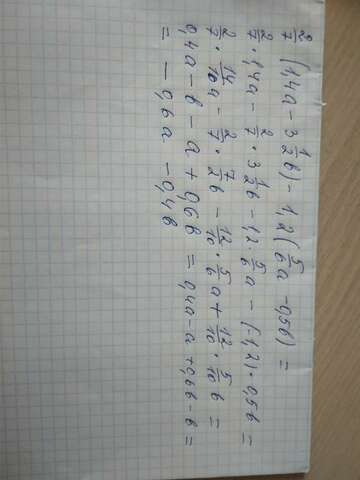 2/7 (1,4a - 3 1/2 b) - 1,2 (5/6 a - 0,5b) =
2/7 · 1,4a - 2/7 · 3 1/2 b - 1,2 · 5/6 a - (-1,2) · 0,5b =
2/7 · 14/10 a - 2/7 · 7/2 b - 12/10 · 5/6 a + 12/10 · 5/10 b =
0,4a - b - a + 0,6b = 0,4a - a + 0,6b - b =
= - 0,6a - 0,4b